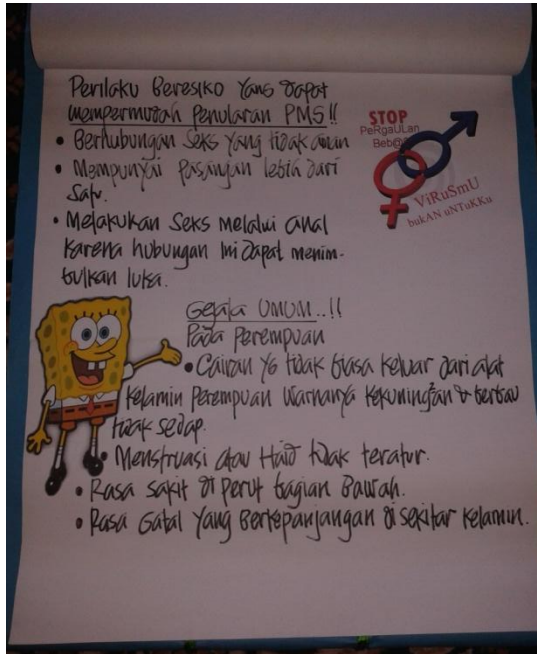 Perilaku Beresiko Yang dapat
mempermudah Penularan PMS!!
• Berhubungan Seks Yang tidak aman
• Mempunyai Pasangan lebih dari
Satu.
• Melakukan Seks Melalui anal
Karena hubungan Ini dapat menim-
bulkan luka.
STOP
PeRgaULan
Beb@s
ViRuSmU
bukAN uNTuKKu
Gejala UMUM..!!
Pada Perempuan
• Cairan Yg tidak biasa keluar dari alat
Kelamin Perempuan Warnanya Kekuningan & berbau
tidak sedap.
• Menstruasi atau Haid tidak teratur.
• Rasa sakit di Perut bagian Bawah.
• Rasa Gatal Yang Berkepanjangan di sekitar Kelamin.